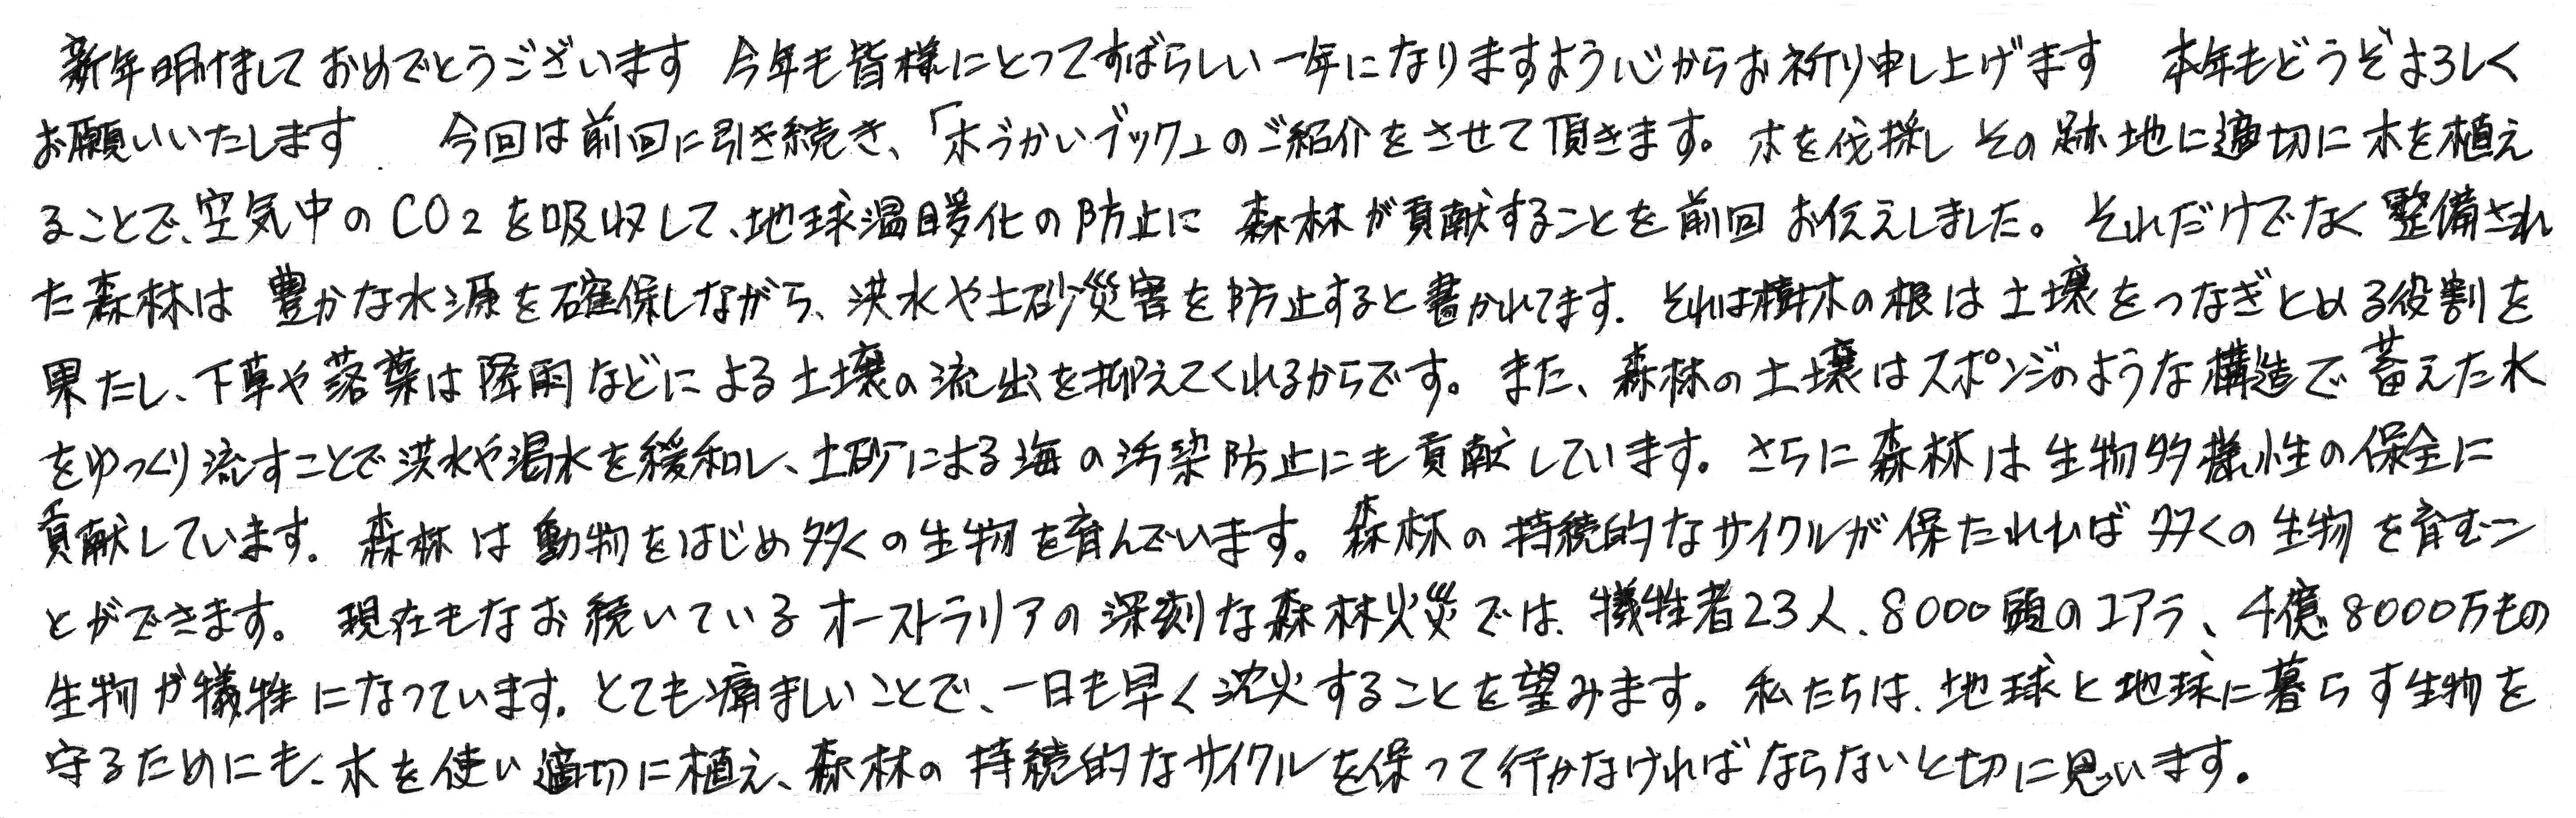 新年明けましておめでとうございます 今年も皆様にとってすばらしい一年になりますよう心からお祈り申し上げます 本年もどうぞよろしく
お願いいたします 今回は前回に引き続き、「木づかいブック」のご紹介をさせて頂きます。木を伐採しその跡地に適切に木を植え
ることで、空気中のCO2を吸収して、地球温暖化の防止に 森林が貢献することを前回お伝えしました。それだけでなく整備され
た森林は 豊かな水源を確保しながら、洪水や土砂災害を防止すると書かれてます。それは樹木の根は土壌をつなぎとめる役割を
果たし、下草や落葉は降雨などによる土壌の流出を抑えてくれるからです。また、森林の土壌はスポンジのような構造で蓄えた水
をゆっくり流すことで洪水や渇水を緩和し、土砂による海の汚染防止にも貢献しています。さらに森林は生物多様性の保全に
貢献しています。森林は動物をはじめ多くの生物を育んでいます。森林の持続的なサイクルが保たれれば多くの生物を育むこ
とができます。現在もなお続いているオーストラリアの深刻な森林火災では、犠牲者23人、8000頭のコアラ、4億8000万もの
生物が犠牲になっています。とても痛ましいことで、一日も早く沈火することを望みます。私たちは、地球と地球に暮らす生物を
守るためにも、木を使い適切に植え、森林の持続的なサイクルを保って行かなければならないと切に思います。